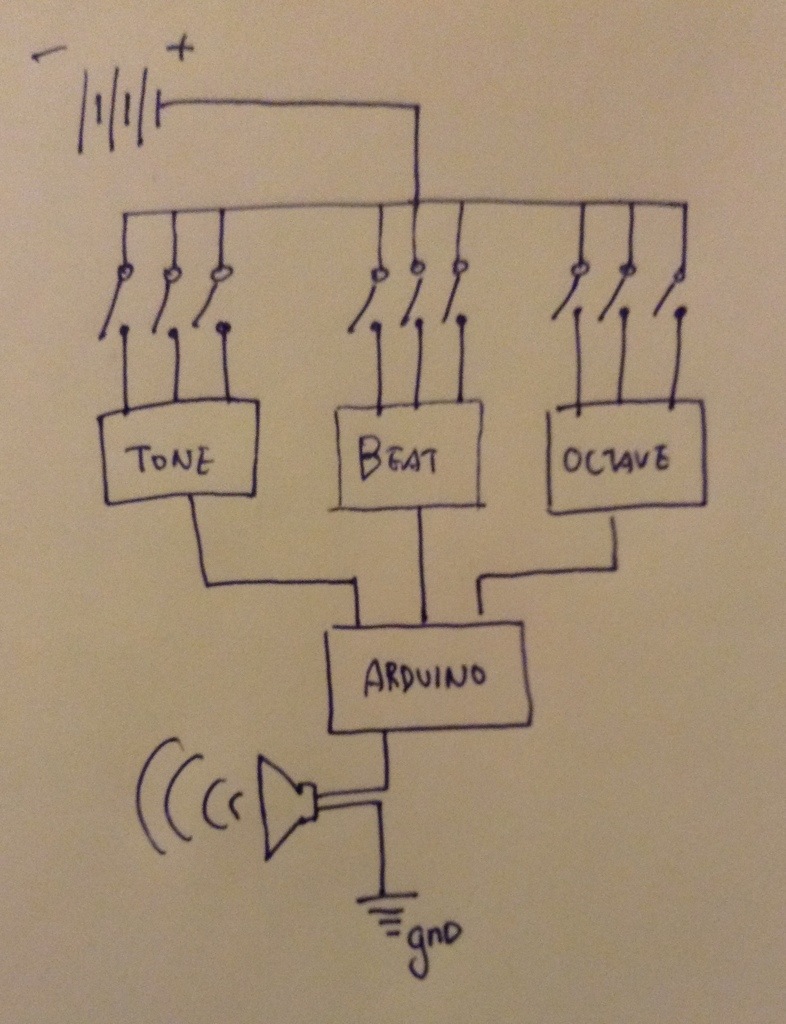 - +
TONE BEAT OCTAVE
ARDUINO
gnd